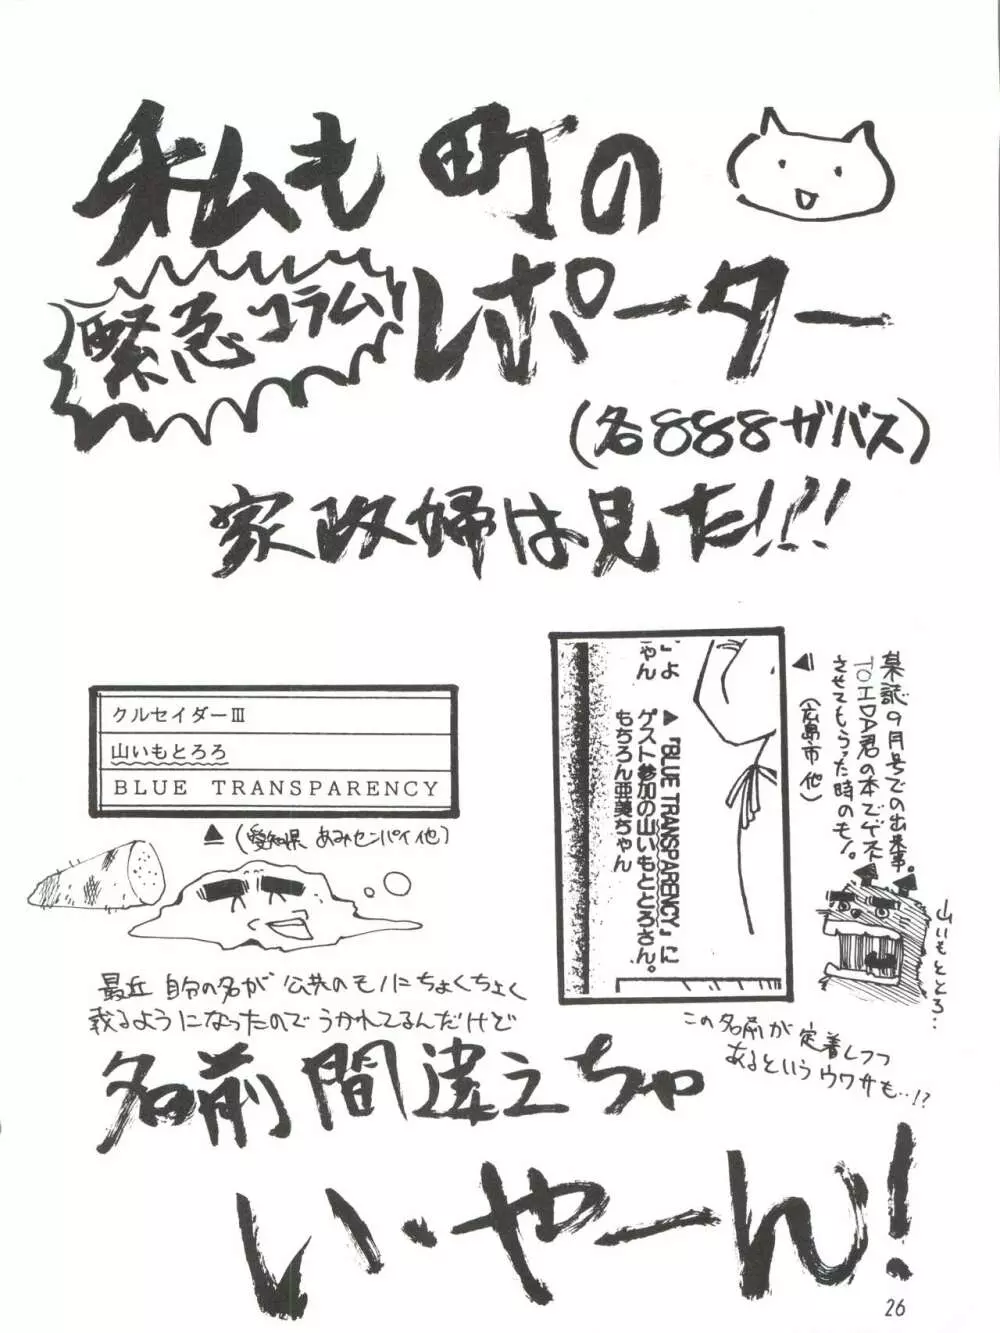 私も町の
レポーター
緊急コラム
(名888ガバス)
家政婦は見た!!!
クルセイダーⅢ
山いもとろろ
BLUE TRANSPARENCY
▲(愛知県 あみセンパイ他)
」よ
ゃん
▲『BLUE TRANSPARENCY』に
ゲスト参加の山いもととろさん。
もちろん亜美ちゃん
某誌9月号での出来事。
TOIDA君の本でゲスト
させてもらった時のモノ。
▲(広島市 他)
山いもととろ…
最近 自分の名が 公共のモノにちょくちょく
載るようになったので うかれてるんだけど
この名前が 定着しつつ
あるというウワサも…!?
名前間違えちゃ
い・やーん!
26